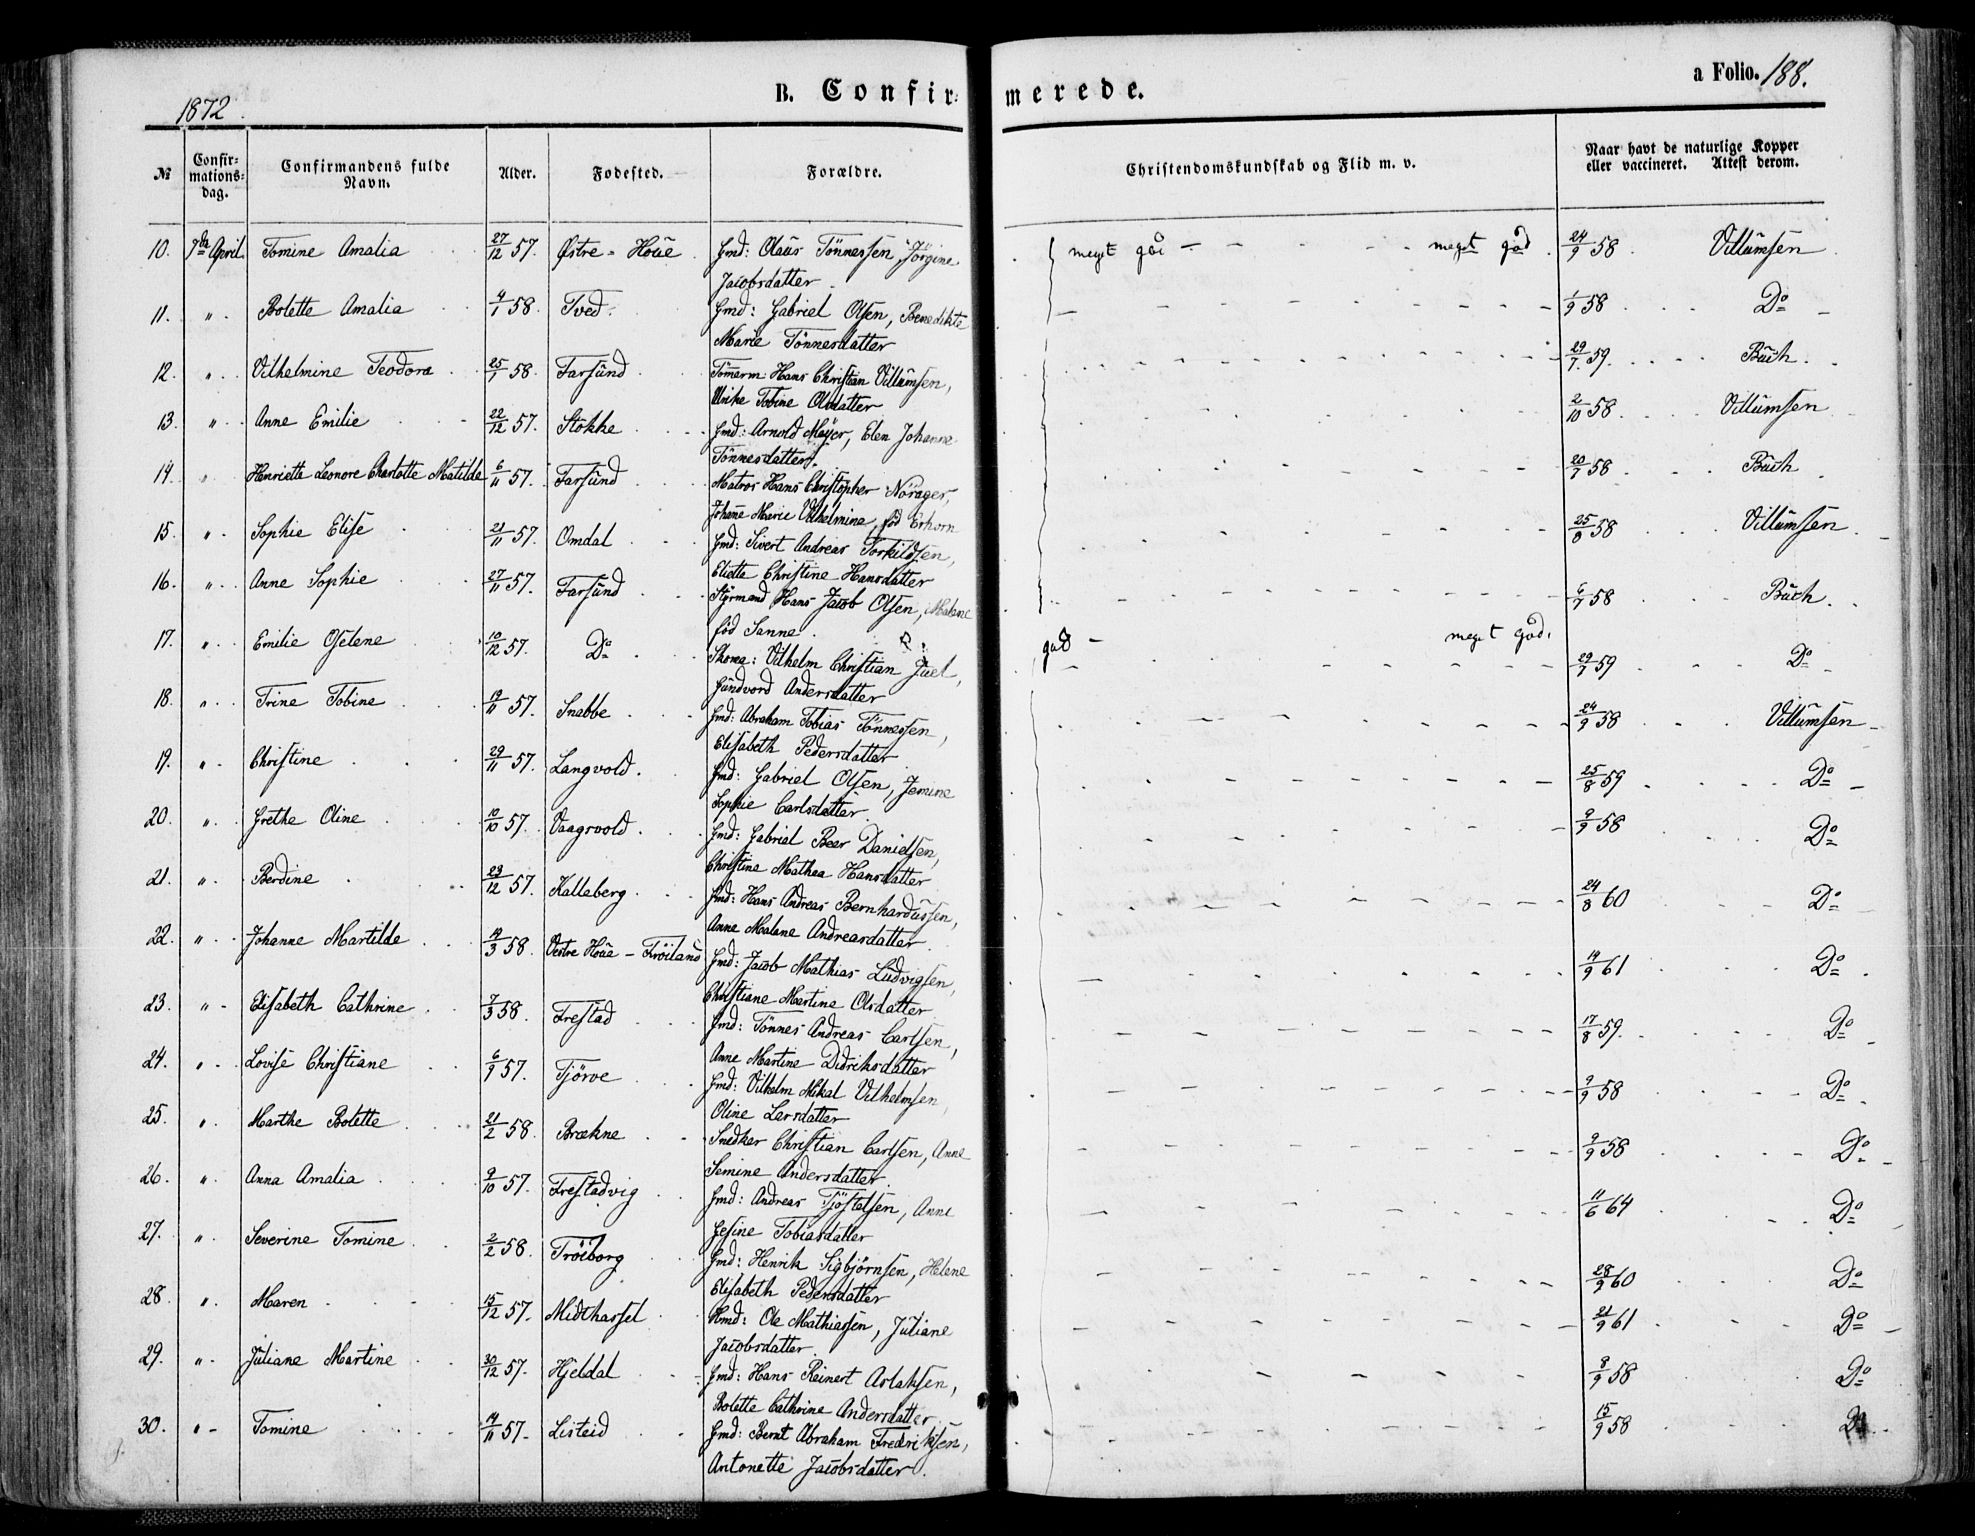 1872. B. Confirmerede. a Folio. 188.
№ Confirmationsdag. Confirmandens fulde Navn. Alder. Fødested. Forældre. Christendomskundskab og Flid m. v. Naar havt de naturlige Kopper eller vaccineret. Attest derom.
10. 7de April. Tomine Amalia 27/12 57. Østre-Houe Gmd: Olaus Tönnessen, Jörgine meget god meget god 24/9 58 Villumsen
Jacobsdatter
11. " Bolette Amalia 4/1 58 Tved. Gmd: Gabriel Olsen, Benedikte 1/9 58 Do
Marie Tönnesdatter
12. " Vilhelmine Teodora 25/1 58 Farsund Tömerm: Hans Christian Villumsen, 29/7 59. Buch.
Ulrike Tobine Olsdatter
13. " Anne Emilie 22/12 57. Stokke Gmd: Arnold Meyer, Elen Johanne 2/10 58 Villumsen
Tönnesdatter.
14. " Henriette Leonore Charlotte Matilde 6/11 57. Farsund Matros Hans Christopher Nörager, 20/7 58 Buch
Johane Marie Vilhelmine, fød Erhorn
15. " Sophie Elise 21/11 57. Omdal Gmd: Sivert Andreas Torkildsen, 25/8 58 Villumsen
Eliette Christine Hansdatter
16. " Anne Sophie 27/11 57. Farsund Styrmand Hans Jacob Olsen, Malene 6/7 58 Buch.
fød Sanne.
17. " Emilie Oselene 10/12 57. Do Skoma: Vilhelm Christian Juel, god meget god. 29/7 59 Do
Gundvord Andersdatter
18. " Trine Tobine 19/11 57. Snabbe Gmd: Abraham Tobias Tönnessen, 24/9 58 Villumsen
Elisabeth Pedersdatter
19. " Christine 29/11 57. Langvold. Gmd: Gabriel Olsen, Jemine 25/8 59 Do
Sophie Carlsdatter.
20. " Grethe Oline 10/10 57. Vaagsvold. Gmd: Gabriel Beer Danielsen, 9/9 58 Do
Christine Mathea Hansdatter
21. " Berdine 23/12 57. Kalleberg Gmd: Hans Andreas Bernhardussen, 24/8 60 Do
Anne Malene Andreasdatter
22. " Johanne Martilde 14/3 58. Vestre Houe - Fröiland Gmd: Jacob Mathias Ludvigsen, 14/9 61 Do
Christiane Martine Olsdatter
23. " Elisabeth Cathrine 7/3 58. Frestad Gmd: Tönnes Andreas Carlsen, 17/8 59. Do
Anne Martine Didriksdatter
24. " Lovise Christiane 6/9 57. Tjörve Gmd: Vilhelm Mikal Vilhelmsen, 9/9 58 Do
Oline Larsdatter
25. " Marthe Bolette 21/2 58. Brækne Snedker Christian Carlsen, Anne 9/9 58 Do
Semine Andersdatter.
26. " Anna Amalia 9/10 57. Frestadvig Gmd: Andreas Tjöstelsen, Anne 11/6 64 Do
Gesine Tobiasdatter
27. " Severine Tomine 2/2 58. Fröiborg Gmd: Henrik Sigbjörnsen, Helene 28/9 60 Do
Elisabeth Pedersdatter
28. " Maren 15/12 57. Midthassel Hmd: Ole Mathiassen, Juliane 21/9 61 Do
Jacobsdatter
29. " Juliane Martine 30/12 57. Hjeldal Gmd: Hans Reinert Aslaksen, 8/9 58 Do
Bolette Cathrine Andersdatter
30. " Tomine 14/11 57. Listeid Gmd: Bernt Abraham Fredriksen, 15/9 58 Do
Antonette Jacobsdatter.